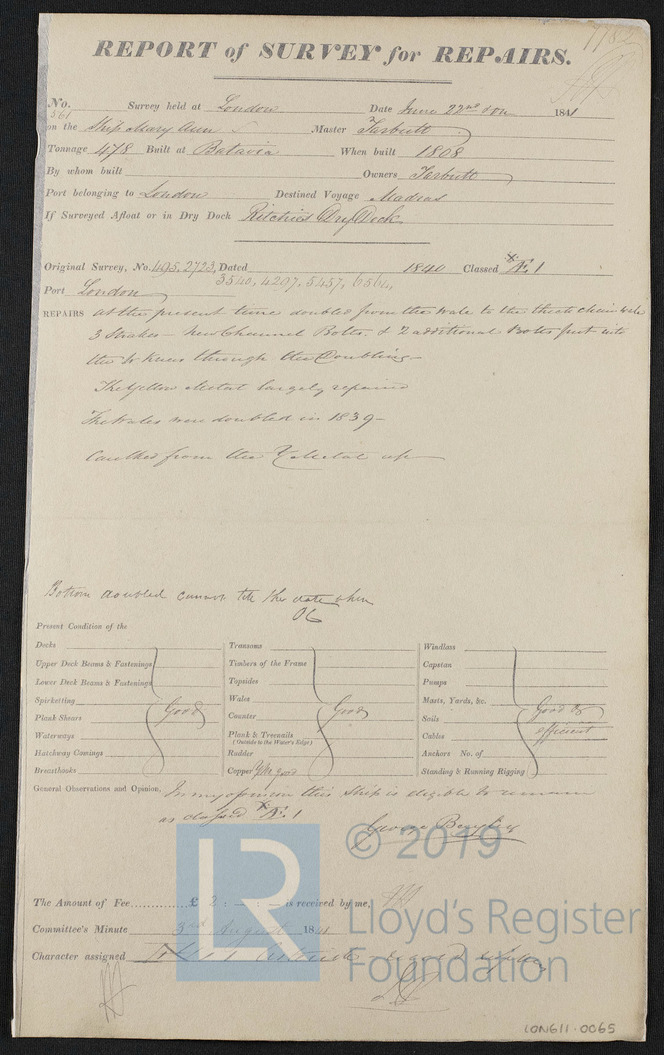 REPORT of SURVEY for REPAIRS.
No. 361 Survey held at London Date June 22nd 1841
on the Ship Mary Ann Master Tarbutt
Tonnage 478 Built at Batavia When built 1808
By whom built Owners Tarbutt
Port belonging to London Destined Voyage Madras
If Surveyed Afloat or in Dry Dock Ritchies Dry Dock
Original Survey, No. 495, 2723, Dated 1840 Classed Æ 1
3540, 4207, 5457, 6564,
Port London
REPAIRS at the present time doubled from the wale to the thick chain wale
3 Strakes - New Channel Bolts & 2 additional Bolts put into
the Knees through the Doubling
The Yellow Metal largely repaired
The Wales were doubled in 1839
Caulked from the Y Metal up
Bottom doubled cannot tell the date when
Present Condition of the
Decks
Upper Deck Beams & Fastenings
Lower Deck Beams & Fastenings
Spirketting
Plank Shears
Waterways
Hatchway Comings
Breasthooks
Good
Transoms
Timbers of the Frame
Topsides
Wales
Counter
Plank & Treenails
(Outside to the Water's Edge)
Rudder
Copper Y M good
Good
Windlass
Capstan
Pumps
Masts, Yards, &c.
Sails
Cables
Anchors No. of
Standing & Running Rigging
Good &
efficient
General Observations and Opinion, In my opinion this Ship is eligible to remain
as classed Æ 1
George Bayley
The Amount of Fee £ 2 : - : - is received by me,
Committee's Minute 3rd August 1841
Character assigned
LR
© 2019
Lloyd's Register
Foundation
LON611-0065